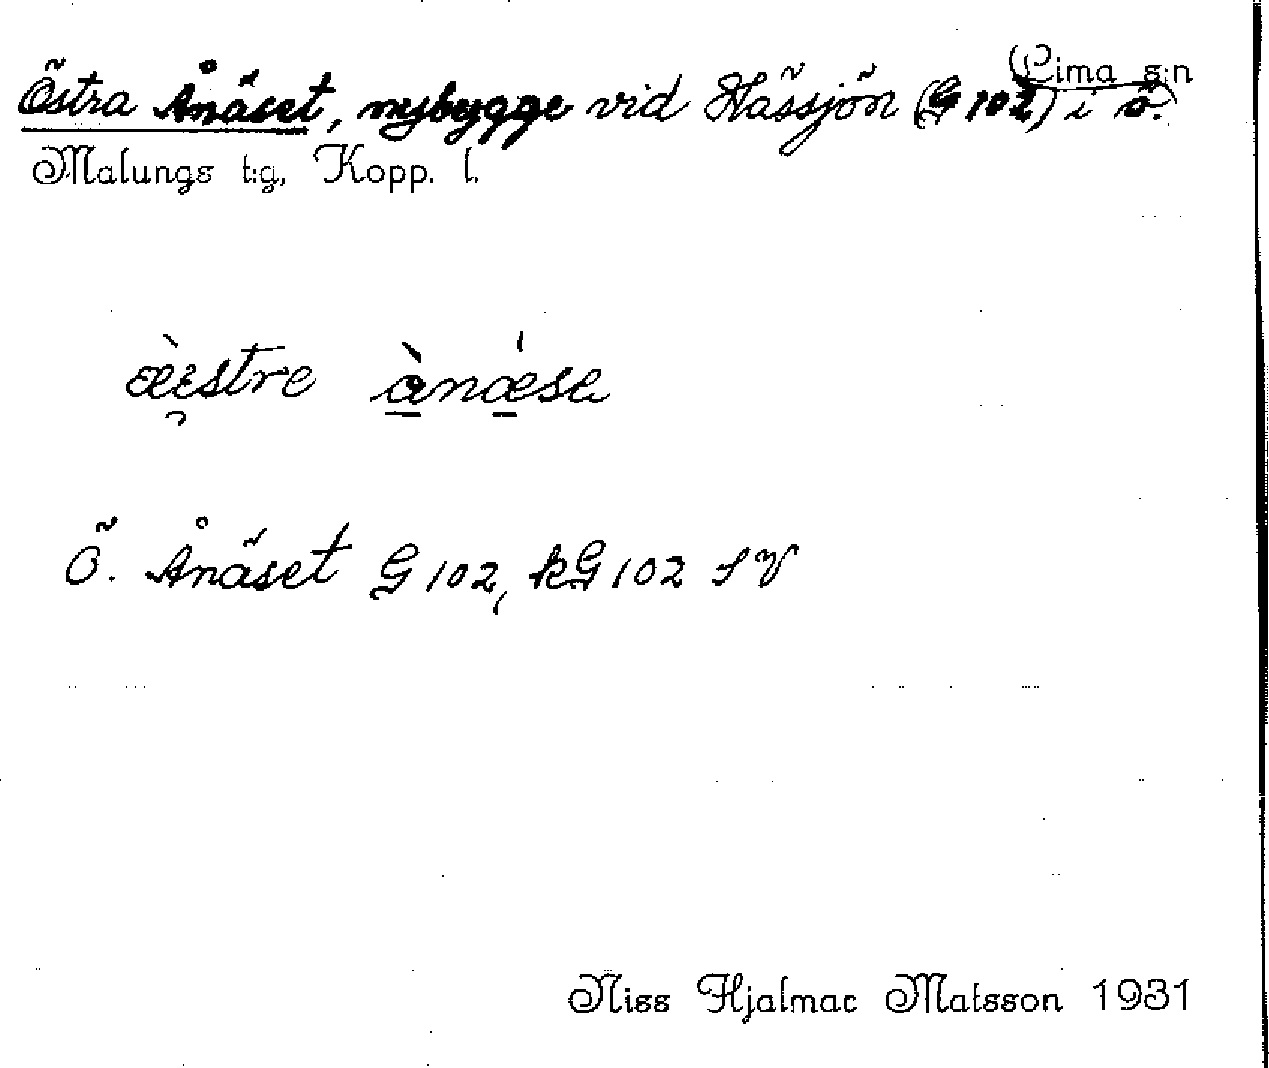 Östra Ånäset, nybygge vid Hässjön (G 102) i ö. (Lima s:n)
Malungs t:g, Kopp. l.
Ö. Ånäset G 102, kG 102 SV
Niss Hjalmar Matsson 1931